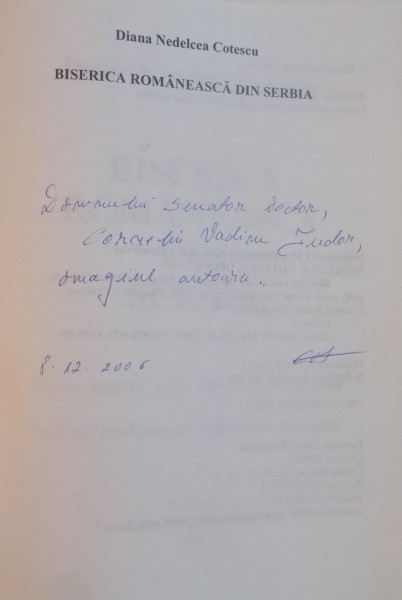 Diana Nedelcea Cotescu
BISERICA ROMÂNEASCĂ DIN SERBIA
Domnului Senator Doctor,
Corneliu Vadim Tudor,
omagiul autoarei.
8.12.2006